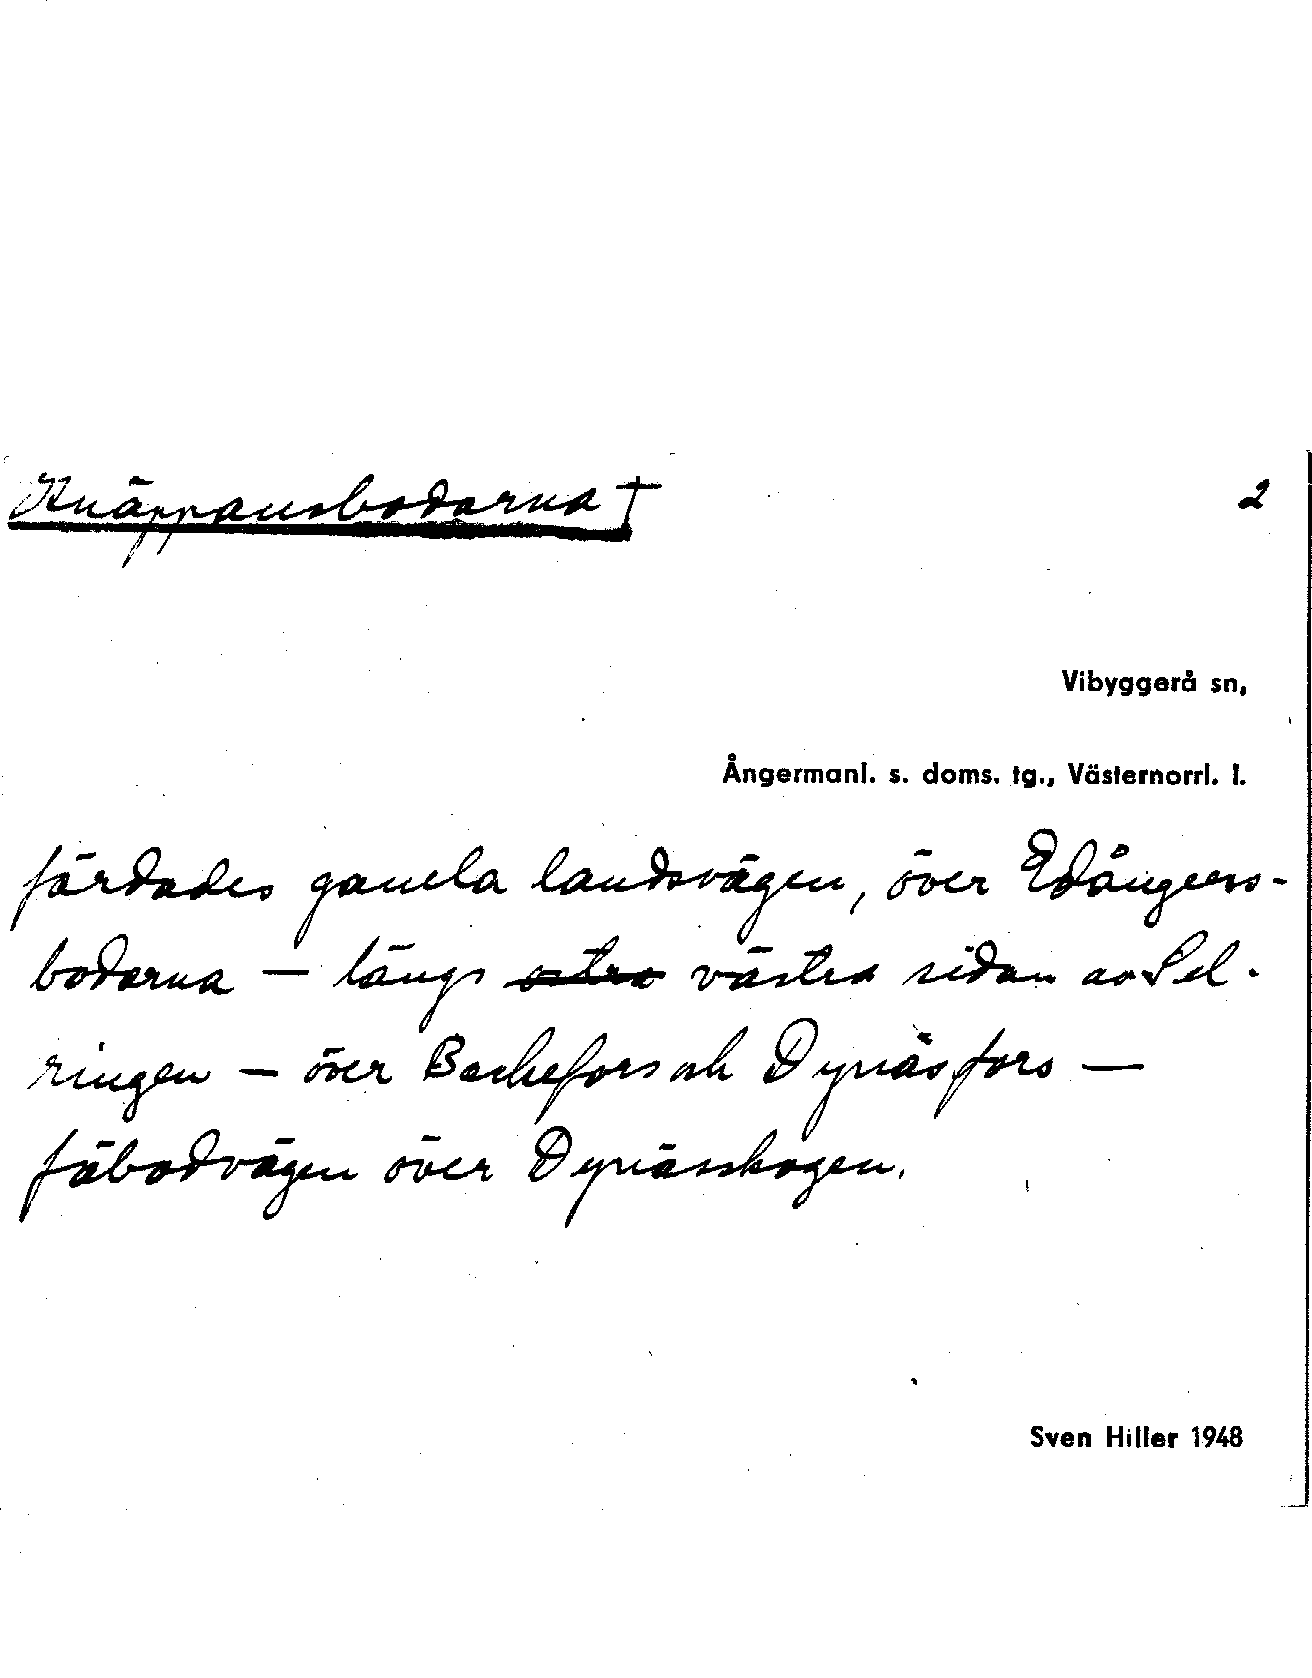 Knäppansbodarna †
2
Vibyggerå sn,
Ångermanl. s. doms. tg., Västernorrl. l.
färdades gamla landsvägen, över Edångers-
bodarna — längs östra västra sidan av Sel-
ringen — över Backefors och Dynäsfors —
fäbodvägen över Dynässkogen.
Sven Hiller 1948